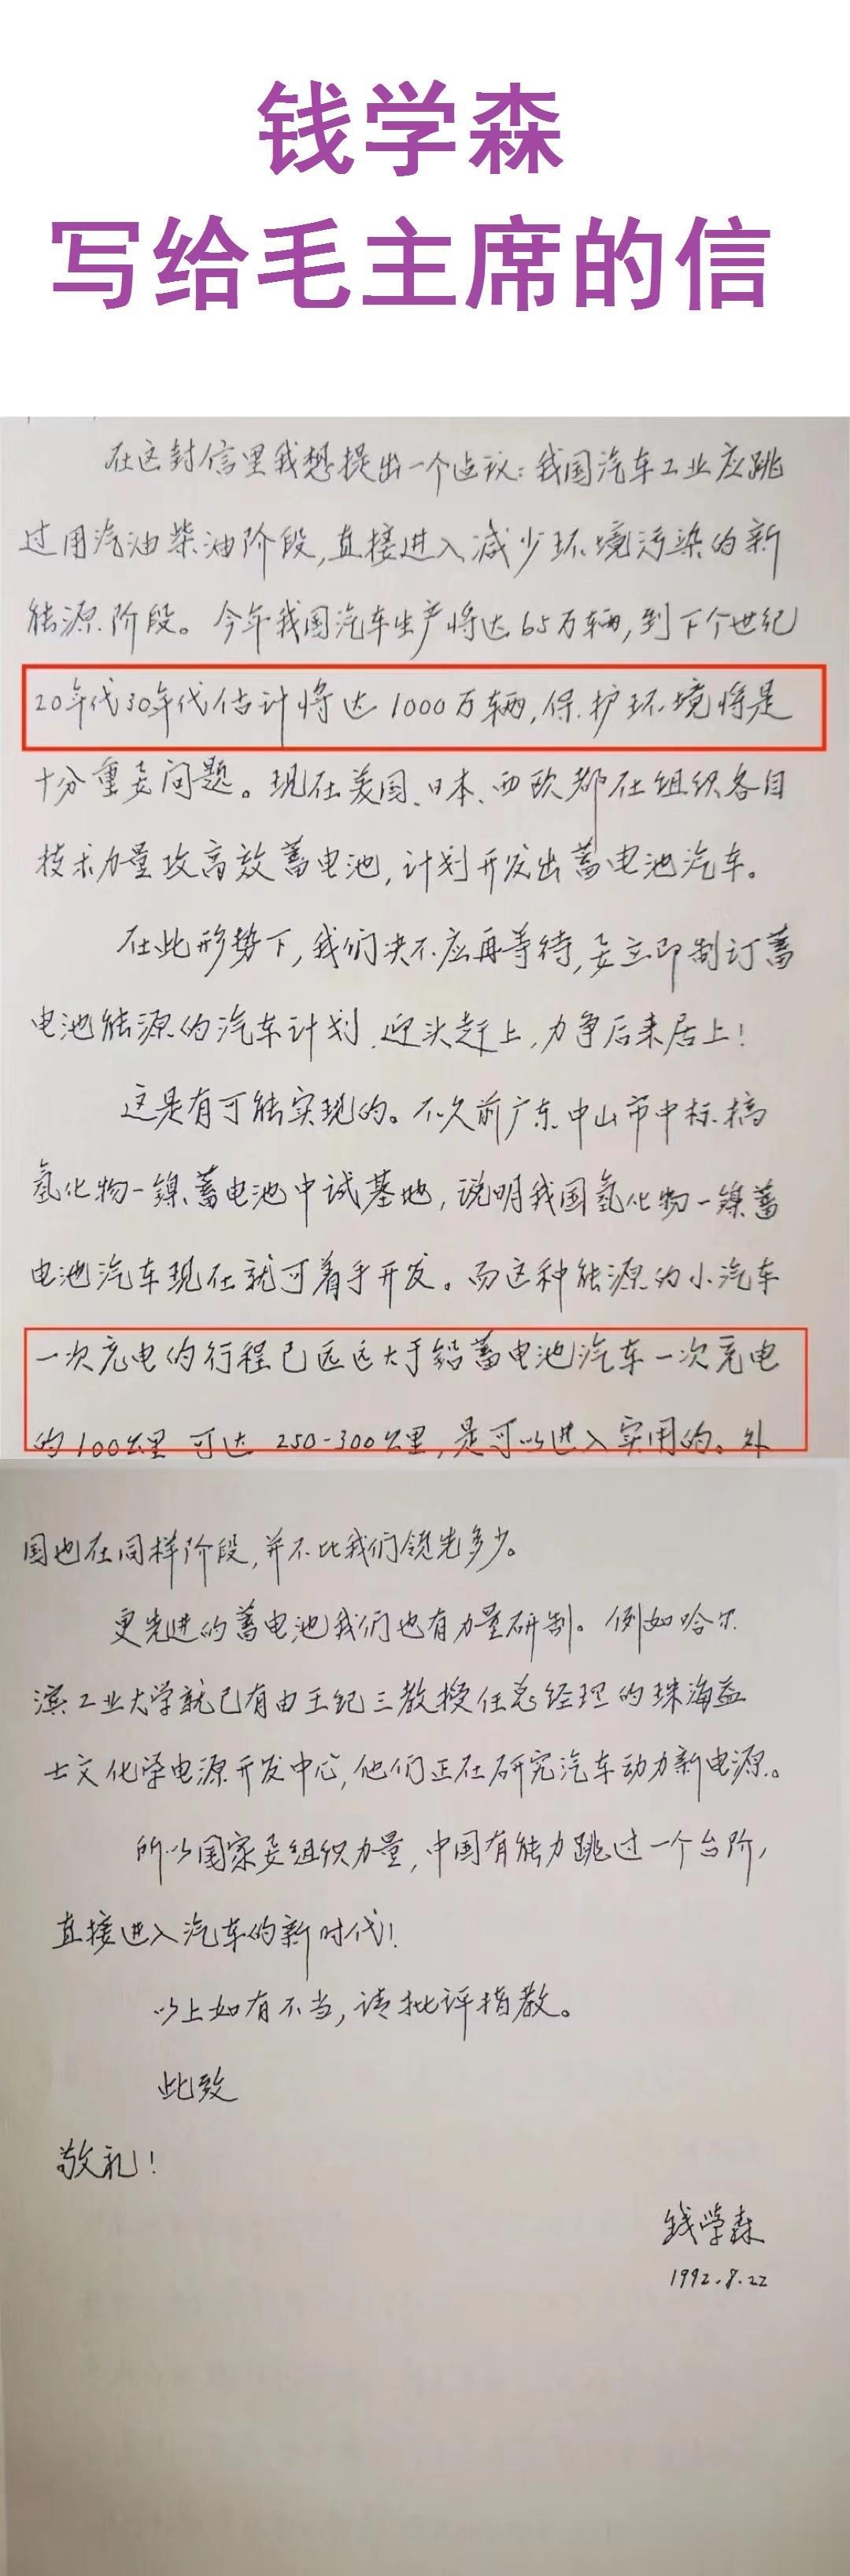 钱学森
写给毛主席的信
在这封信里我想提出一个建议：我国汽车工业应跳
过用汽油柴油阶段，直接进入减少环境污染的新
能源阶段。今年我国汽车生产将达65万辆，到下个世纪
20年代30年代估计将达1000万辆，保护环境将是
十分重要问题。现在美国、日本、西欧都在组织各自
技术力量攻高效蓄电池，计划开发出蓄电池汽车。
在此形势下，我们决不应再等待，要立即制订蓄
电池能源的汽车计划，迎头赶上，力争后来居上！
这是有可能实现的。不久前广东中山市中标搞
氢化物－镍蓄电池中试基地，说明我国氢化物－镍蓄
电池汽车现在就可着手开发。而这种能源的小汽车
一次充电的行程已远远大于铅蓄电池汽车一次充电
的100公里 可达 250-300公里，是可以进入实用的。外
国也在同样阶段，并不比我们领先多少。
更先进的蓄电池我们也有力量研制。例如哈尔
滨工业大学就已有由王纪三教授任总经理的珠海益
士文化学电源开发中心，他们正在研究汽车动力新电源。
所以国家要组织力量，中国有能力跳过一个台阶，
直接进入汽车的新时代！
以上如有不当，请批评指教。
此致
敬礼！
钱学森
1992.8.22